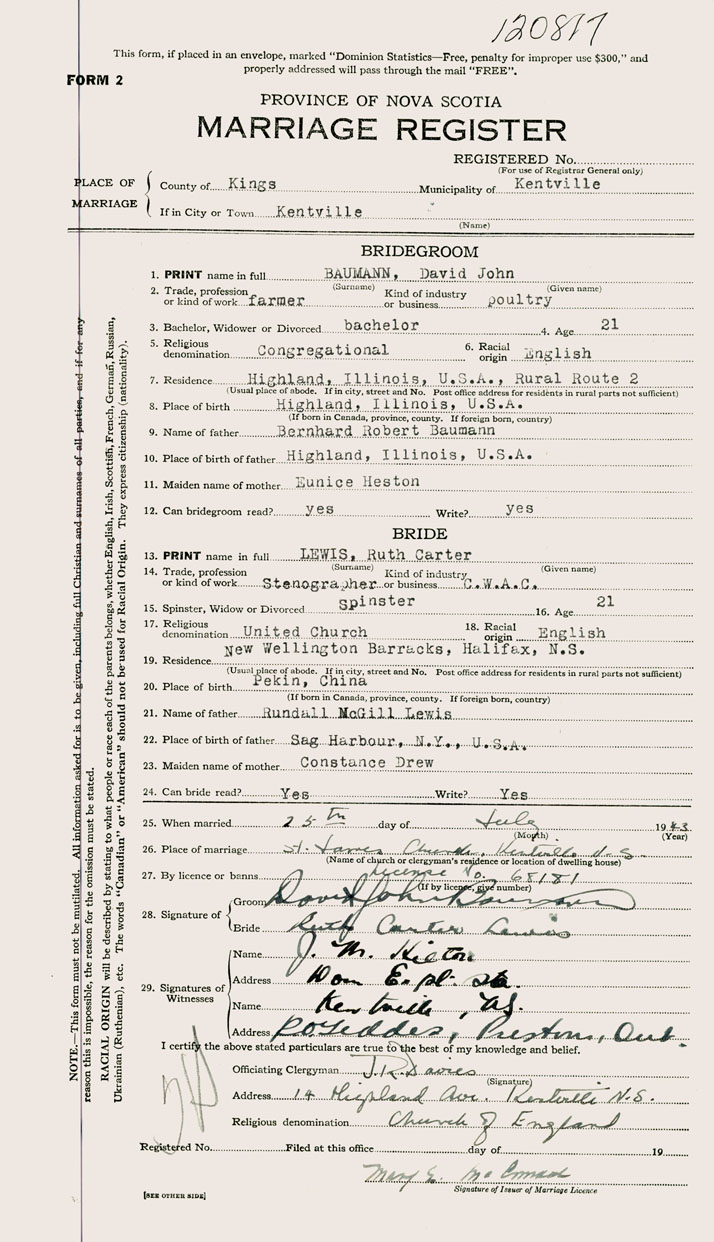 120817
This form, if placed in an envelope, marked "Dominion Statistics—Free, penalty for improper use $300," and
properly addressed will pass through the mail "FREE".
FORM 2
PROVINCE OF NOVA SCOTIA
MARRIAGE REGISTER
REGISTERED No.
(For use of Registrar General only)
PLACE OF MARRIAGE
County of Kings Municipality of Kentville
If in City or Town Kentville
(Name)
BRIDEGROOM
1. PRINT name in full BAUMANN, David John
(Surname) (Given name)
2. Trade, profession or kind of work farmer Kind of industry or business poultry
3. Bachelor, Widower or Divorced bachelor 4. Age 21
5. Religious denomination Congregational 6. Racial origin English
7. Residence Highland, Illinois, U.S.A., Rural Route 2
(Usual place of abode. If in city, street and No. Post office address for residents in rural parts not sufficient)
8. Place of birth Highland, Illinois, U.S.A.
(If born in Canada, province, county. If foreign born, country)
9. Name of father Bernhard Robert Baumann
10. Place of birth of father Highland, Illinois, U.S.A.
11. Maiden name of mother Eunice Heston
12. Can bridegroom read? yes Write? yes
BRIDE
13. PRINT name in full LEWIS, Ruth Carter
(Surname) (Given name)
14. Trade, profession or kind of work Stenographer Kind of industry or business C.W.A.C.
15. Spinster, Widow or Divorced Spinster 16. Age 21
17. Religious denomination United Church 18. Racial origin English
19. Residence New Wellington Barracks, Halifax, N.S.
(Usual place of abode. If in city, street and No. Post office address for residents in rural parts not sufficient)
20. Place of birth Pekin, China
(If born in Canada, province, county. If foreign born, country)
21. Name of father Rundall McGill Lewis
22. Place of birth of father Sag Harbour, N.Y., U.S.A.
23. Maiden name of mother Constance Drew
24. Can bride read? Yes Write? Yes
25. When married 25th day of July 1943
(Month) (Year)
26. Place of marriage St. James Church, Kentville N.S.
(Name of church or clergyman's residence or location of dwelling house)
27. By licence or banns License No. 68181
(If by licence, give number)
28. Signature of
Groom David John Baumann
Bride Ruth Carter Lewis
29. Signatures of Witnesses
Name J. M. Hilton
Address Dom Expl. Sta.
Name Kentville, N.S.
Address Geddes, Preston, Ont.
I certify the above stated particulars are true to the best of my knowledge and belief.
Officiating Clergyman J.R. Davies
(Signature)
Address 14 Highland Ave. Kentville N.S.
Religious denomination Church of England
Registered No. Filed at this office day of 19
Mary E.
Signature of Issuer of Marriage Licence
[SEE OTHER SIDE]
NOTE.—This form must not be mutilated. All information asked for is to be given, including full Christian and surnames of all parties, and if for any
reason this is impossible, the reason for the omission must be stated.
RACIAL ORIGIN will be described by stating to what people or race each of the parents belongs, whether English, Irish, Scottish, French, German, Russian,
Ukrainian (Ruthenian), etc. The words "Canadian" or "American" should not be used for Racial Origin. They express citizenship (nationality).